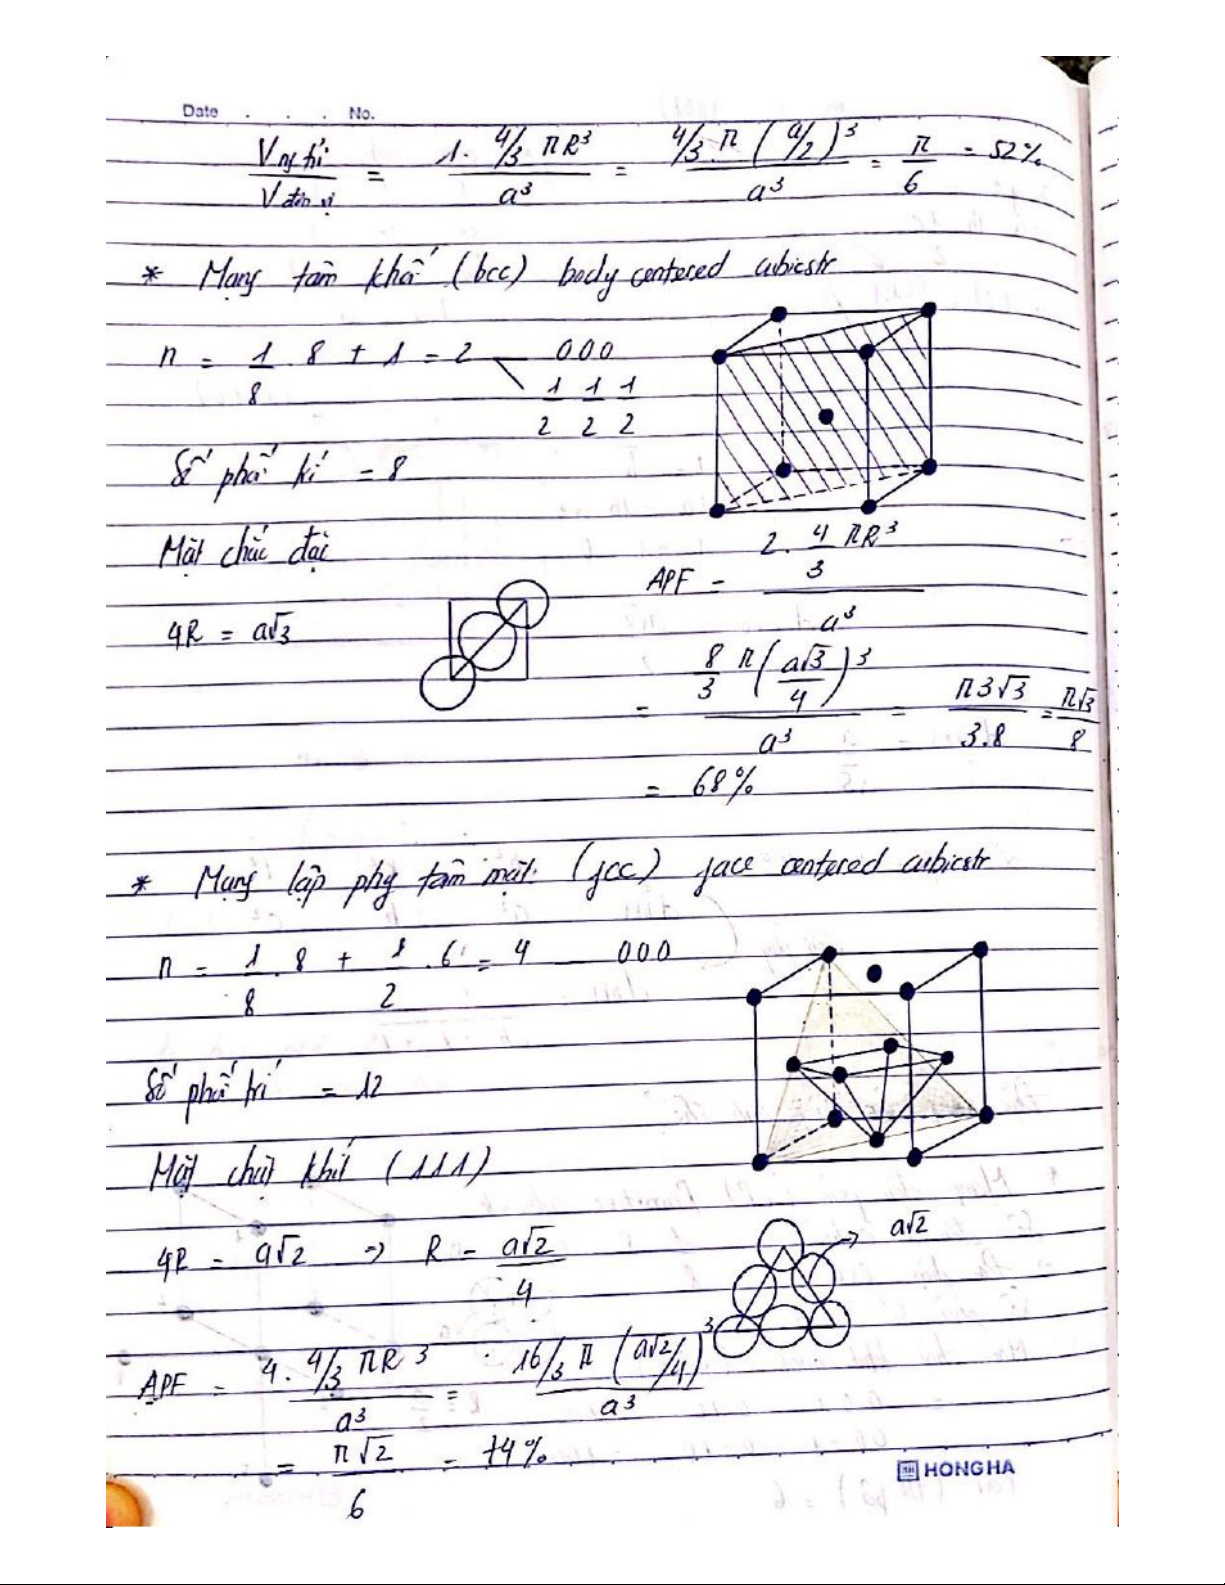 Date . . . No.
V ng tử / V đơn vị = 1. 4/3 πR³ / a³ = 4/3.π (a/2)³ / a³ = π/6 = 52%
* Mạng tâm khối (bcc) body centered cubicstr
n = 1/8 . 8 + 1 = 2 000
1/2 1/2 1/2
Số phối trí = 8
Mặt chéo đại
4R = a√3
APF = 2. 4/3 πR³ / a³
= 8/3 π (a√3/4)³ / a³ = π3√3 / 3.8 = π√3 / 8
= 68%
* Mạng lập phg tâm mặt (fcc) face centered cubicstr
n = 1/8 . 8 + 1/2 . 6 = 4 000
Số phối trí = 12
Mặt chặt khít (111)
4R = a√2 => R = a√2/4
a√2
APF = 4. 4/3 πR³ / a³ = 16/3 π (a√2/4)³ / a³
= π√2 / 6 = 74%
HONG HA